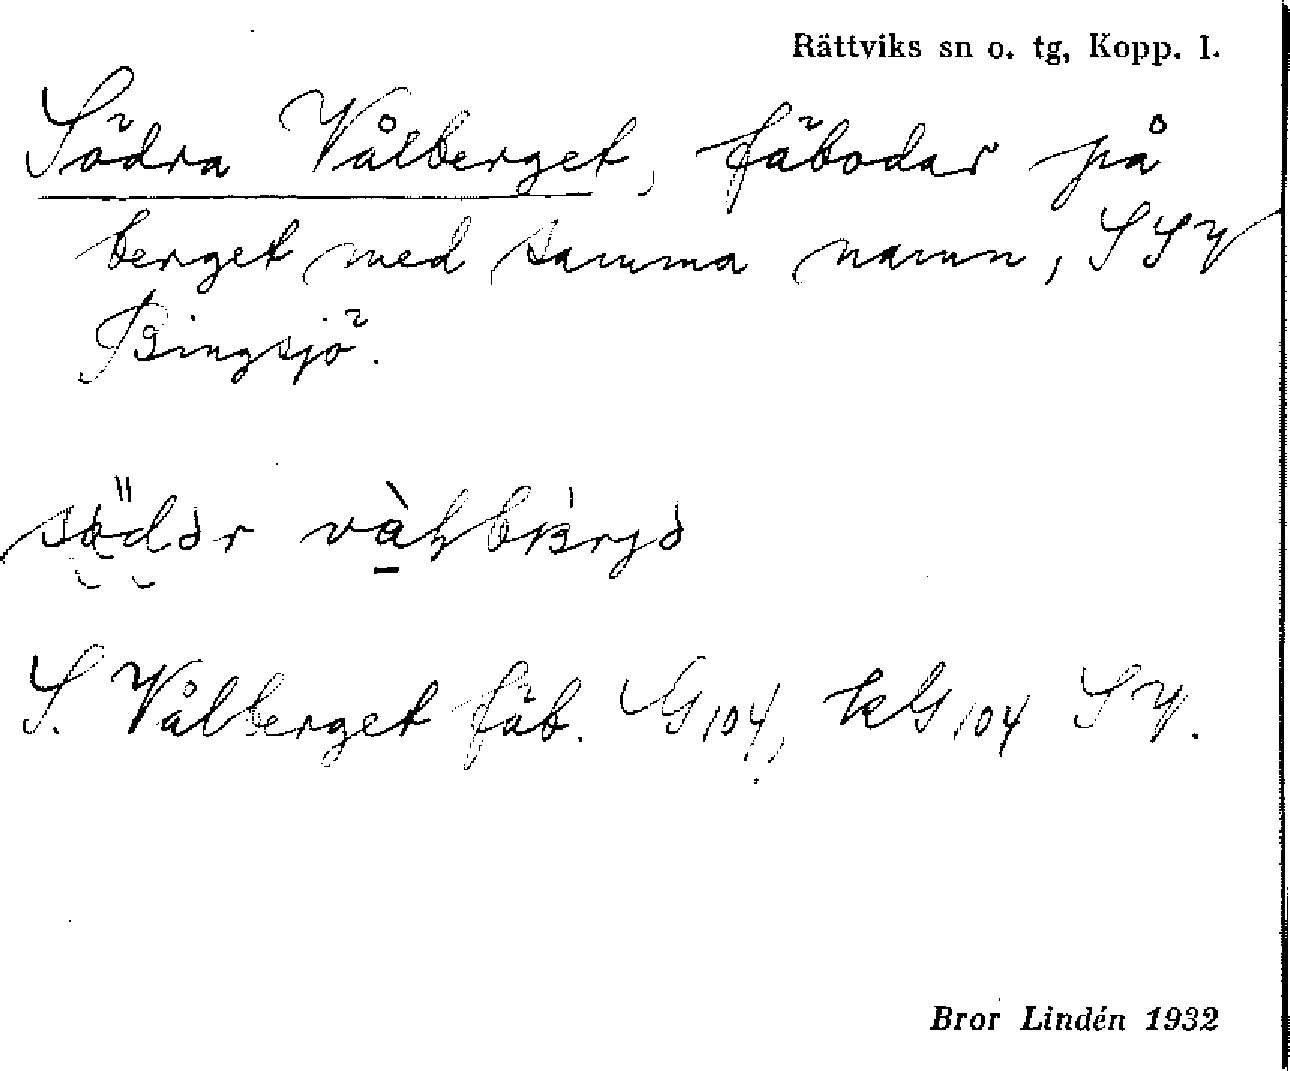 Rättviks sn o. tg, Kopp. I.
Södra Vålberget, fäbodar på
berget med samma namn, SSV
Bingsjö.
S. Vålberget fäb. G104, kG104 SV.
Bror Lindén 1932